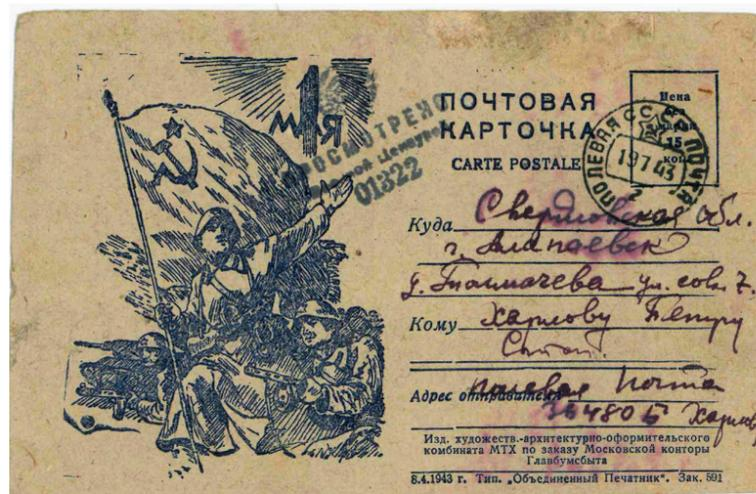 1 МАЯ
ПРОСМОТРЕНО
Военной Цензурой
01322
ПОЧТОВАЯ
КАРТОЧКА
CARTE POSTALE
Цена
марки
15
коп.
ПОЛЕВАЯ ПОЧТА СССР
19 7 43
2
Куда Свердловская обл.
г. Алапаевск
д. Толмачева ул. сов. 7.
Кому Харлову Петру
Адрес отправителя полевая почта
36480 Б Харлов
Изд. художеств.-архитектурно-оформительского
комбината МТХ по заказу Московской конторы
Главбумсбыта
8.4.1943 г. Тип. „Объединенный Печатник". Зак. 591